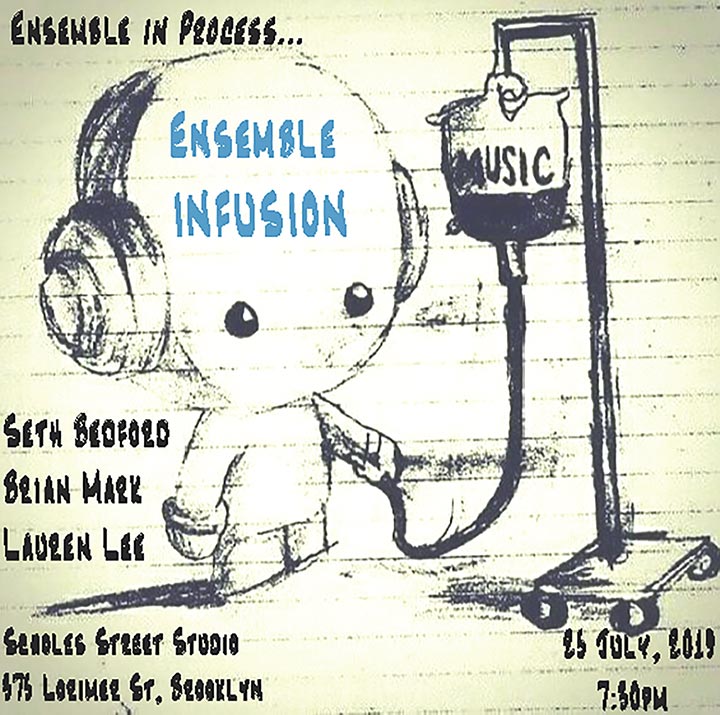 Ensemble in Process...
Ensemble
Infusion
MUSIC
Seth Bedford
Brian Mark
Lauren Lee
Scholes Street Studio
375 Lorimer St, Brooklyn
25 July, 2019
7:30pm